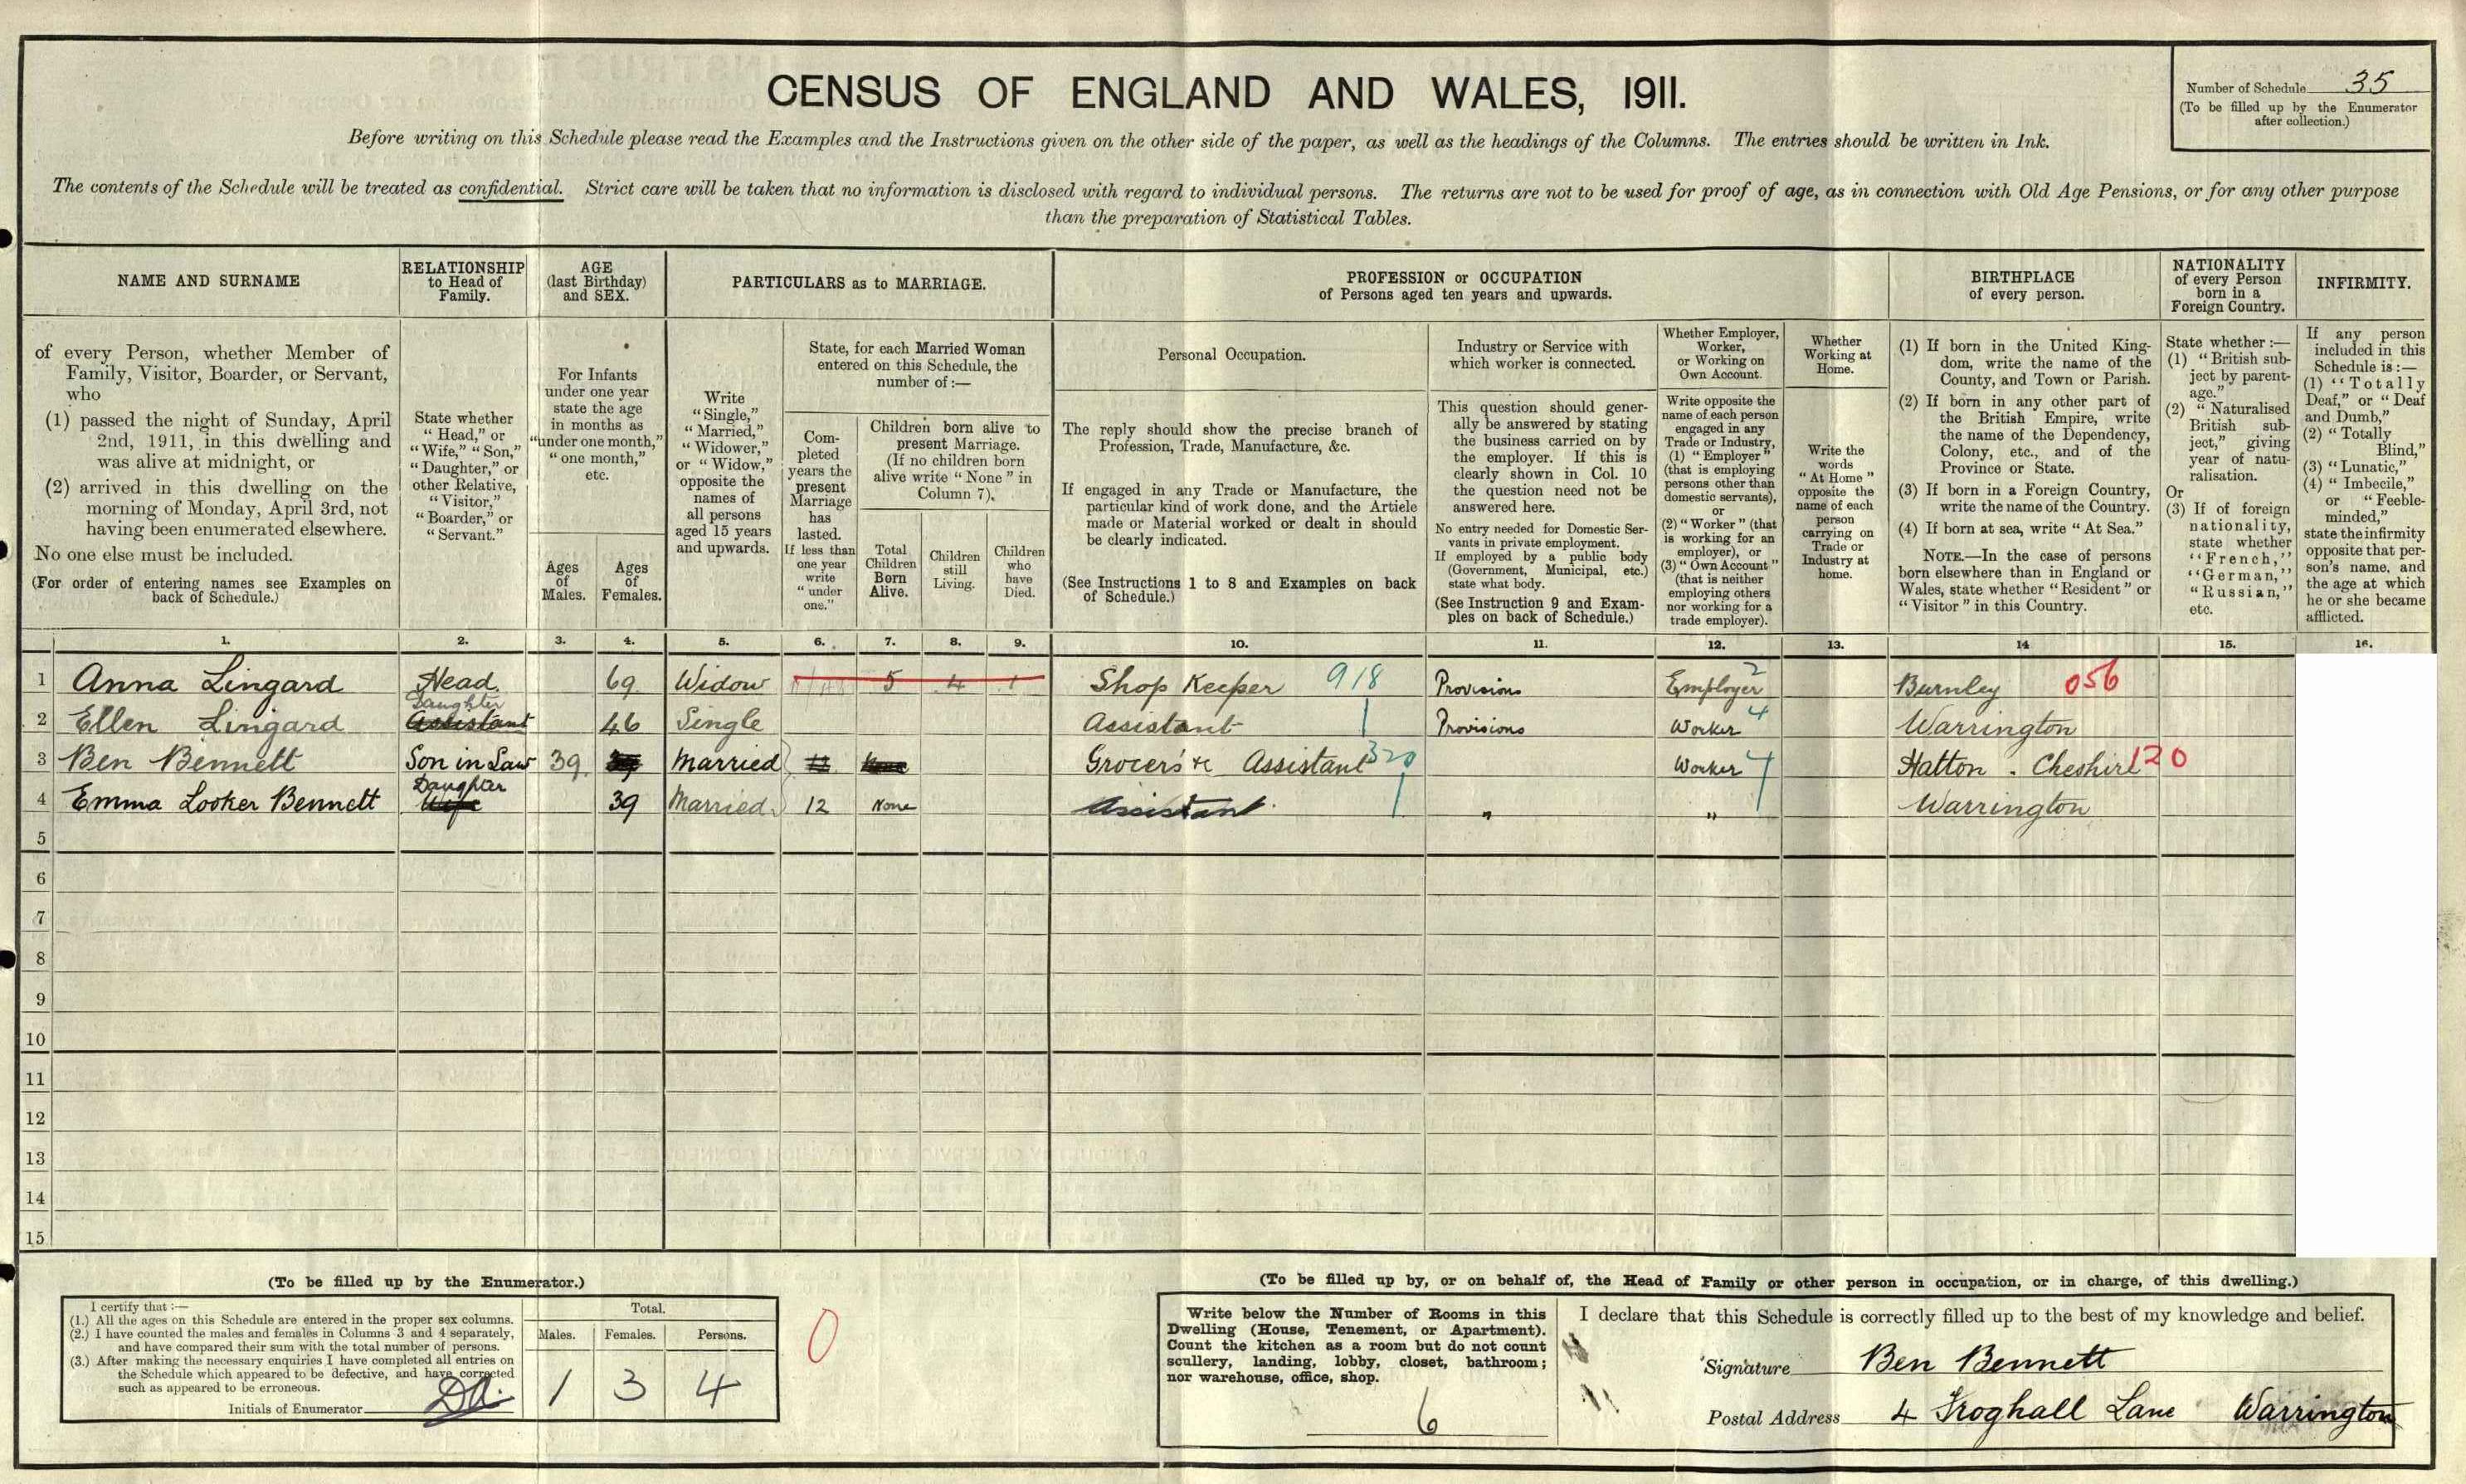 CENSUS OF ENGLAND AND WALES, 1911.
Number of Schedule 35
(To be filled up by the Enumerator
after collection.)
Before writing on this Schedule please read the Examples and the Instructions given on the other side of the paper, as well as the headings of the Columns. The entries should be written in Ink.
The contents of the Schedule will be treated as confidential. Strict care will be taken that no information is disclosed with regard to individual persons. The returns are not to be used for proof of age, as in connection with Old Age Pensions, or for any other purpose
than the preparation of Statistical Tables.
NAME AND SURNAME
of every Person, whether Member of
Family, Visitor, Boarder, or Servant,
who
(1) passed the night of Sunday, April
2nd, 1911, in this dwelling and
was alive at midnight, or
(2) arrived in this dwelling on the
morning of Monday, April 3rd, not
having been enumerated elsewhere.
No one else must be included.
(For order of entering names see Examples on
back of Schedule.)
RELATIONSHIP
to Head of
Family.
State whether
"Head," or
"Wife," "Son,"
"Daughter," or
other Relative,
"Visitor,"
"Boarder," or
"Servant."
AGE
(last Birthday)
and SEX.
For Infants
under one year
state the age
in months as
"under one month,"
"one month,"
etc.
Ages
of
Males.
Ages
of
Females.
PARTICULARS as to MARRIAGE.
Write
"Single,"
"Married,"
"Widower,"
or "Widow,"
opposite the
names of
all persons
aged 15 years
and upwards.
State, for each Married Woman
entered on this Schedule, the
number of:—
Com-
pleted
years the
present
Marriage
has
lasted.
If less than
one year
write
"under
one."
Children born alive to
present Marriage.
(If no children born
alive write "None" in
Column 7).
Total
Children
Born
Alive.
Children
still
Living.
Children
who
have
Died.
PROFESSION or OCCUPATION
of Persons aged ten years and upwards.
Personal Occupation.
The reply should show the precise branch of
Profession, Trade, Manufacture, &c.
If engaged in any Trade or Manufacture, the
particular kind of work done, and the Article
made or Material worked or dealt in should
be clearly indicated.
(See Instructions 1 to 8 and Examples on back
of Schedule.)
Industry or Service with
which worker is connected.
This question should gener-
ally be answered by stating
the business carried on by
the employer. If this is
clearly shown in Col. 10
the question need not be
answered here.
No entry needed for Domestic Ser-
vants in private employment.
If employed by a public body
(Government, Municipal, etc.)
state what body.
(See Instruction 9 and Exam-
ples on back of Schedule.)
Whether Employer,
Worker,
or Working on
Own Account.
Write opposite the
name of each person
engaged in any
Trade or Industry,
(1) "Employer"
(that is employing
persons other than
domestic servants),
or
(2) "Worker" (that
is working for an
employer), or
(3) "Own Account"
(that is neither
employing others
nor working for a
trade employer).
Whether
Working at
Home.
Write the
words
"At Home"
opposite the
name of each
person
carrying on
Trade or
Industry at
home.
BIRTHPLACE
of every person.
(1) If born in the United King-
dom, write the name of the
County, and Town or Parish.
(2) If born in any other part of
the British Empire, write
the name of the Dependency,
Colony, etc., and of the
Province or State.
(3) If born in a Foreign Country,
write the name of the Country.
(4) If born at sea, write "At Sea."
NOTE.—In the case of persons
born elsewhere than in England or
Wales, state whether "Resident" or
"Visitor" in this Country.
NATIONALITY
of every Person
born in a
Foreign Country.
State whether:—
(1) "British sub-
ject by parent-
age."
(2) "Naturalised
British sub-
ject," giving
year of natu-
ralisation.
Or
(3) If of foreign
nationality,
state whether
"French,"
"German,"
"Russian,"
etc.
INFIRMITY.
If any person
included in this
Schedule is:—
(1) "Totally
Deaf," or "Deaf
and Dumb,"
(2) "Totally
Blind,"
(3) "Lunatic,"
(4) "Imbecile,"
or "Feeble-
minded,"
state the infirmity
opposite that per-
son's name, and
the age at which
he or she became
afflicted.
1. 2. 3. 4. 5. 6. 7. 8. 9. 10. 11. 12. 13. 14 15. 16.
1 Anna Lingard Head. 69 Widow 5 4 1 Shop Keeper 918 Provisions Employer 2 Burnley 056
2 Ellen Lingard Daughter Assistant 46 Single Assistant Provisions Worker 4 Warrington
3 Ben Bennett Son in Law 39. 39 Married 12 None Grocer's Assistant 320 Worker 4 Hatton. Cheshire 120
4 Emma Looker Bennett Daughter Wife 39 Married 12 None Assistant " " Warrington
5
6
7
8
9
10
11
12
13
14
15
(To be filled up by the Enumerator.)
I certify that:—
(1.) All the ages on this Schedule are entered in the proper sex columns.
(2.) I have counted the males and females in Columns 3 and 4 separately,
and have compared their sum with the total number of persons.
(3.) After making the necessary enquiries I have completed all entries on
the Schedule which appeared to be defective, and have corrected
such as appeared to be erroneous.
Initials of Enumerator
Total.
Males. Females. Persons.
1 3 4
0
(To be filled up by, or on behalf of, the Head of Family or other person in occupation, or in charge, of this dwelling.)
Write below the Number of Rooms in this
Dwelling (House, Tenement, or Apartment).
Count the kitchen as a room but do not count
scullery, landing, lobby, closet, bathroom;
nor warehouse, office, shop.
6
I declare that this Schedule is correctly filled up to the best of my knowledge and belief.
Signature Ben Bennett
Postal Address 4 Froghall Lane Warrington